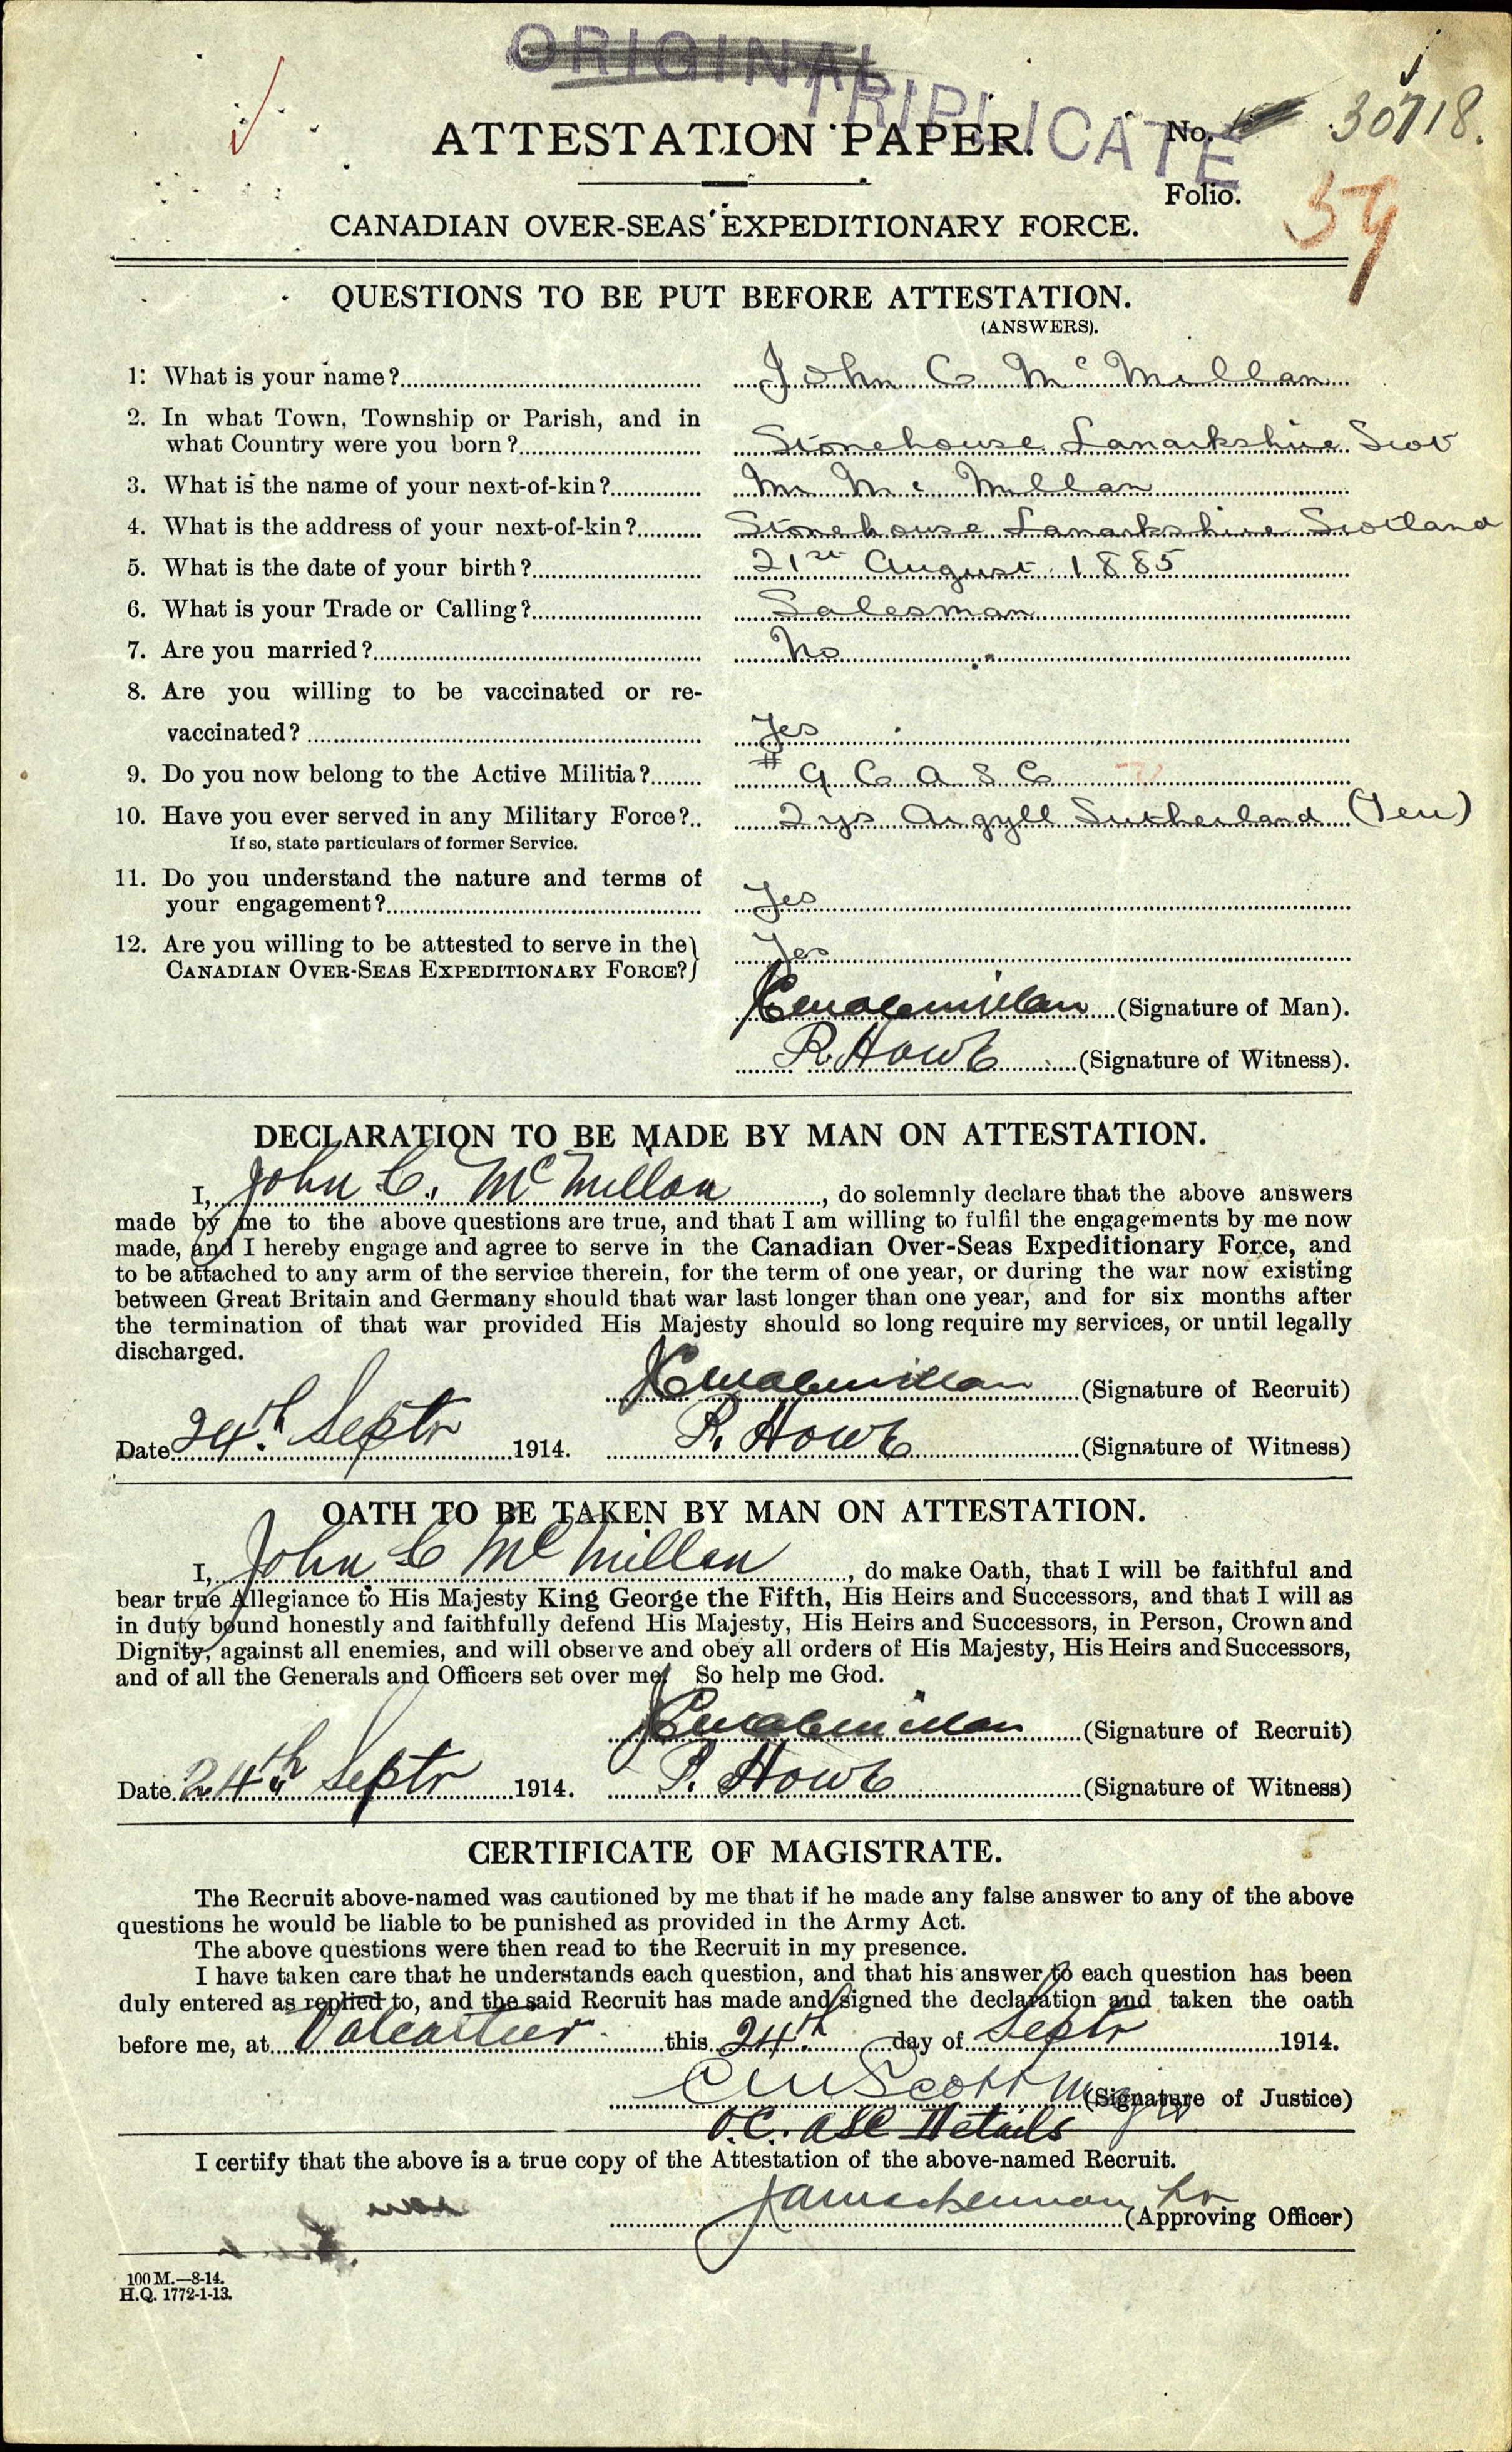 ORIGINAL
TRIPLICATE
ATTESTATION PAPER.
No. 30718.
Folio. 59
CANADIAN OVER-SEAS EXPEDITIONARY FORCE.
QUESTIONS TO BE PUT BEFORE ATTESTATION.
(ANSWERS).
1. What is your name? John C Mc Millan
2. In what Town, Township or Parish, and in
what Country were you born? Stonehouse Lanarkshire Scot
3. What is the name of your next-of-kin? Mc Millan
4. What is the address of your next-of-kin? Stonehouse Lanarkshire Scotland
5. What is the date of your birth? 21st August 1885
6. What is your Trade or Calling? Salesman
7. Are you married? No
8. Are you willing to be vaccinated or re-
vaccinated? Yes
9. Do you now belong to the Active Militia? # 9 C A S C
10. Have you ever served in any Military Force? 2 ys Argyll Sutherland (Terr)
If so, state particulars of former Service.
11. Do you understand the nature and terms of
your engagement? Yes
12. Are you willing to be attested to serve in the
CANADIAN OVER-SEAS EXPEDITIONARY FORCE? Yes
JCMacmillan (Signature of Man).
R. Howe (Signature of Witness).
DECLARATION TO BE MADE BY MAN ON ATTESTATION.
I, John C. Mc Millan, do solemnly declare that the above answers
made by me to the above questions are true, and that I am willing to fulfil the engagements by me now
made, and I hereby engage and agree to serve in the Canadian Over-Seas Expeditionary Force, and
to be attached to any arm of the service therein, for the term of one year, or during the war now existing
between Great Britain and Germany should that war last longer than one year, and for six months after
the termination of that war provided His Majesty should so long require my services, or until legally
discharged.
JCMacmillan (Signature of Recruit)
Date 24th Septr 1914. R. Howe (Signature of Witness)
OATH TO BE TAKEN BY MAN ON ATTESTATION.
I, John C Mc Millan, do make Oath, that I will be faithful and
bear true Allegiance to His Majesty King George the Fifth, His Heirs and Successors, and that I will as
in duty bound honestly and faithfully defend His Majesty, His Heirs and Successors, in Person, Crown and
Dignity, against all enemies, and will observe and obey all orders of His Majesty, His Heirs and Successors,
and of all the Generals and Officers set over me. So help me God.
JCMacmillan (Signature of Recruit)
Date 24th Septr 1914. R. Howe (Signature of Witness)
CERTIFICATE OF MAGISTRATE.
The Recruit above-named was cautioned by me that if he made any false answer to any of the above
questions he would be liable to be punished as provided in the Army Act.
The above questions were then read to the Recruit in my presence.
I have taken care that he understands each question, and that his answer to each question has been
duly entered as replied to, and the said Recruit has made and signed the declaration and taken the oath
before me, at Valcartier this 24th day of Septr 1914.
Scott Major (Signature of Justice)
O.C. ASC Details
I certify that the above is a true copy of the Attestation of the above-named Recruit.
(Approving Officer)
100 M.—8-14.
H.Q. 1772-1-13.